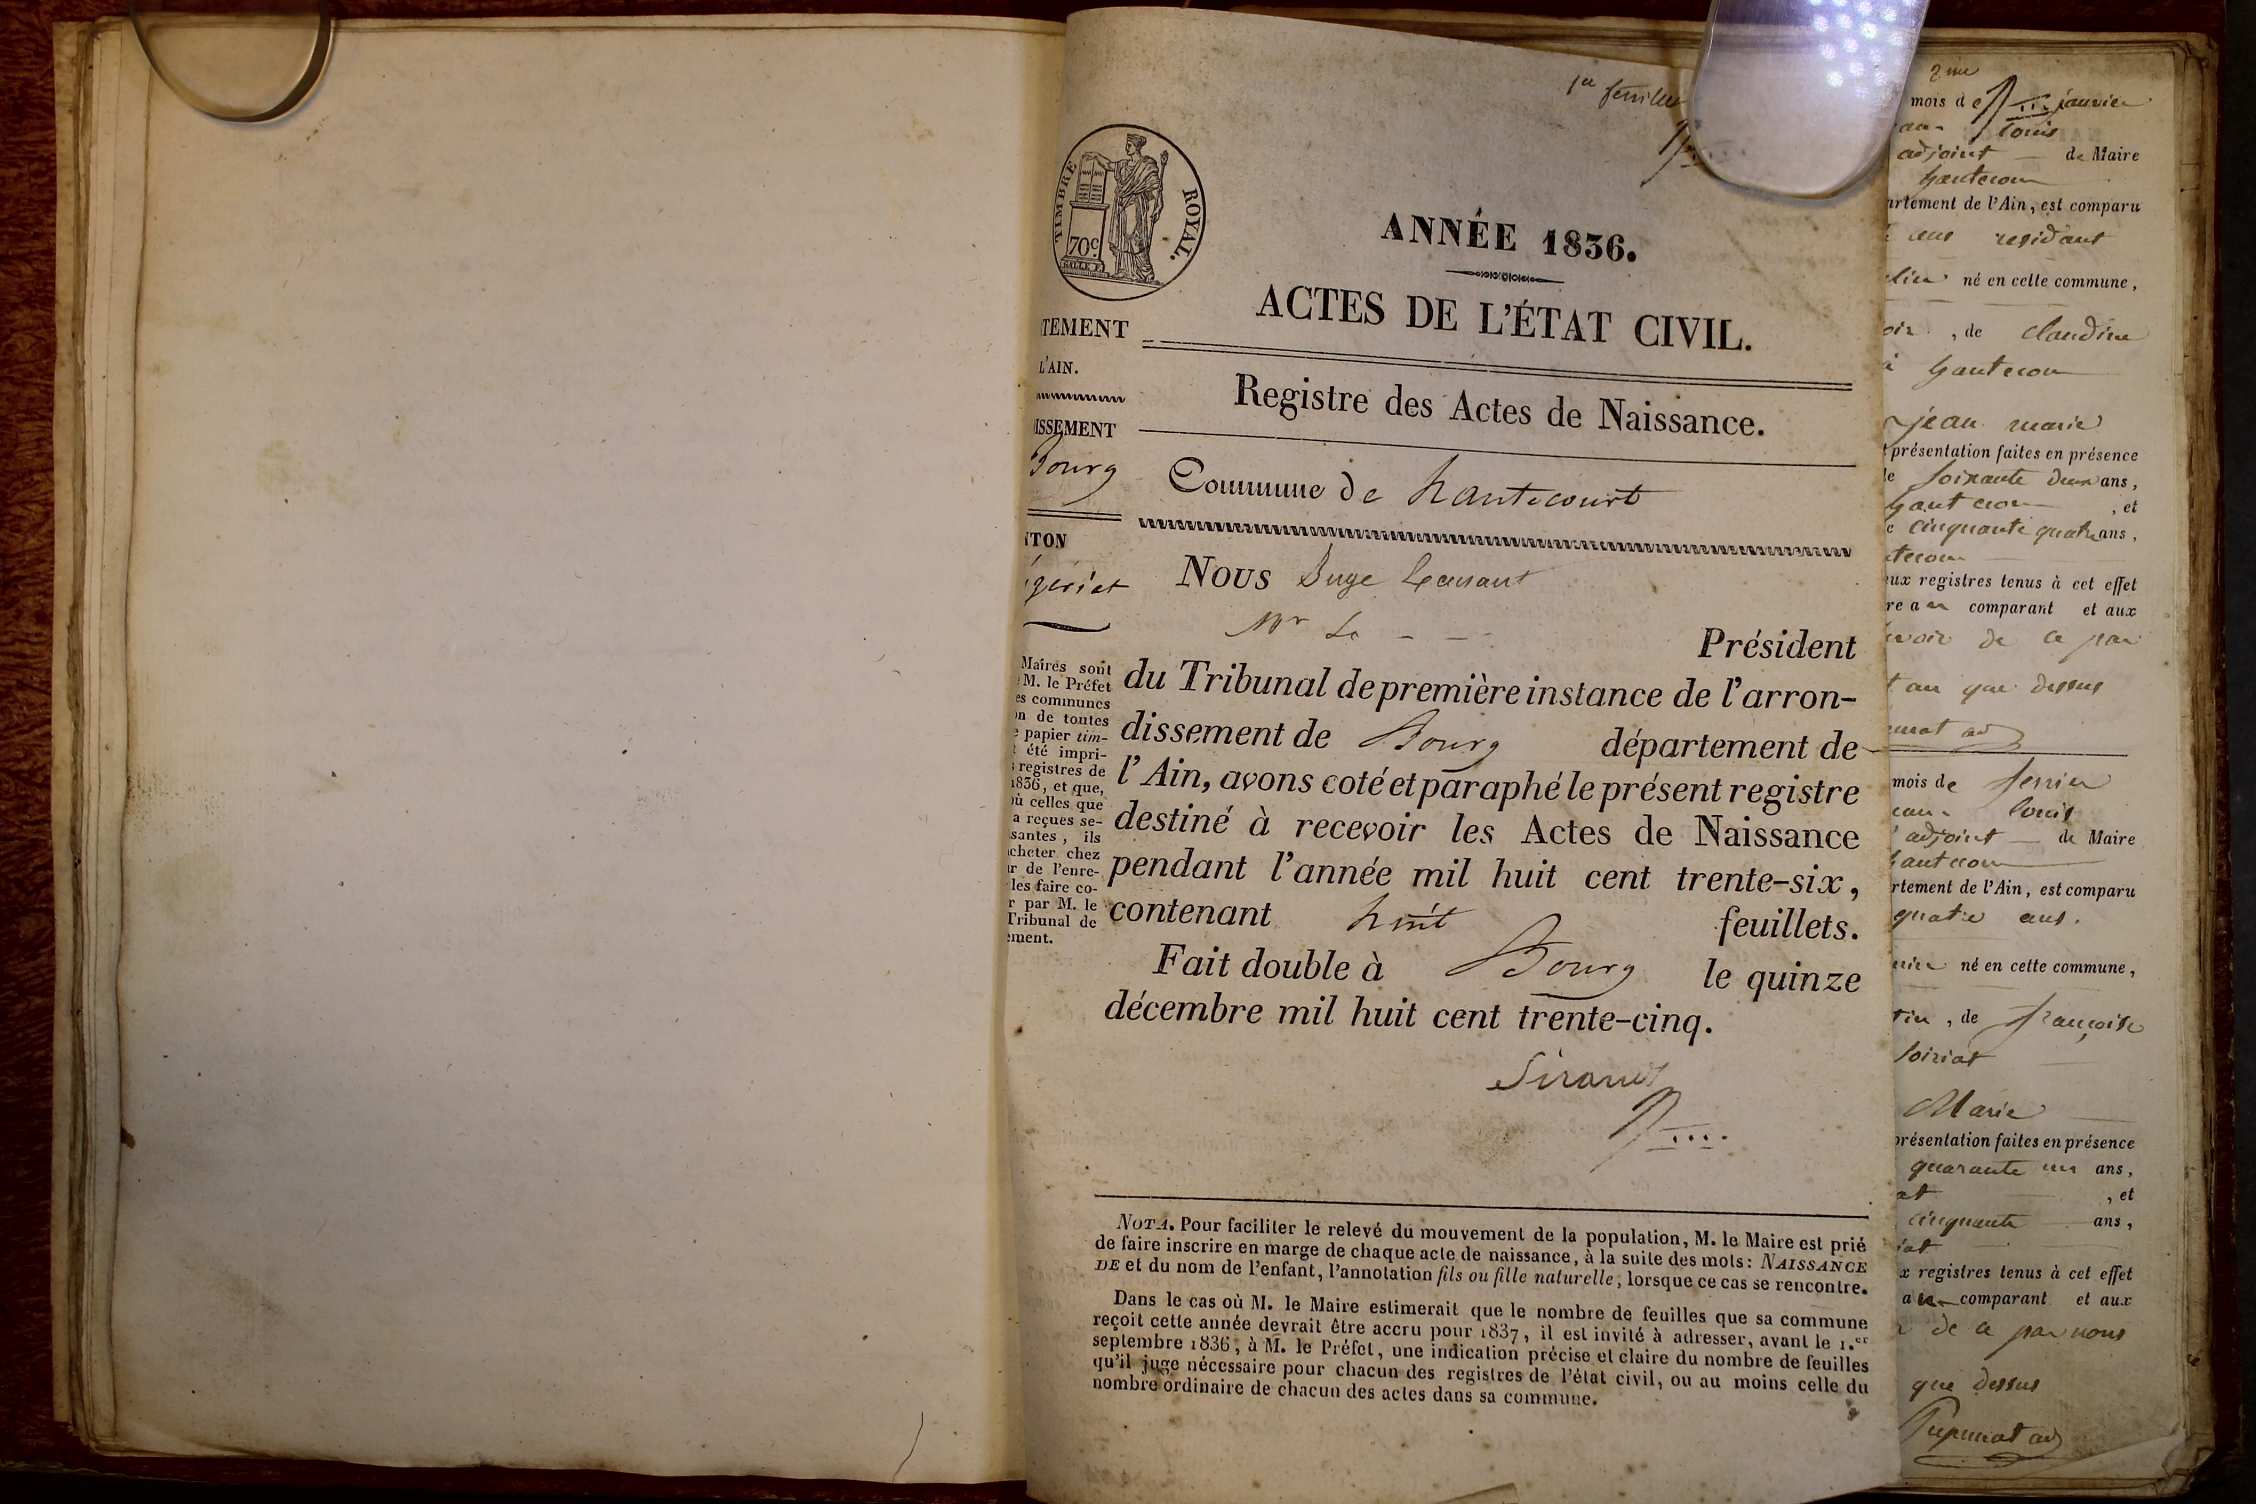 1er feuillet
TIMBRE ROYAL.
70c.
ANNÉE 1836.
ACTES DE L'ÉTAT CIVIL.
TEMENT
L'AIN.
ISSEMENT
Bourg
NTON
gériat
Registre des Actes de Naissance.
Commune de hautecourt
Nous Juge
Mr Le
Président
du Tribunal de première instance de l'arron-
dissement de Bourg département de
l'Ain, avons coté et paraphé le présent registre
destiné à recevoir les Actes de Naissance
pendant l'année mil huit cent trente-six,
contenant huit feuillets.
Fait double à Bourg le quinze
décembre mil huit cent trente-cinq.
Maires sont
M. le Préfet
es communes
on de toutes
papier tim-
été impri-
registres de
1836, et que,
où celles que
a reçues se-
santes, ils
cheter chez
r de l'enre-
les faire co-
r par M. le
Tribunal de
ement.
NOTA. Pour faciliter le relevé du mouvement de la population, M. le Maire est prié
de faire inscrire en marge de chaque acte de naissance, à la suite des mots: NAISSANCE
DE et du nom de l'enfant, l'annotation fils ou fille naturelle, lorsque ce cas se rencontre.
Dans le cas où M. le Maire estimerait que le nombre de feuilles que sa commune
reçoit cette année devrait être accru pour 1837, il est invité à adresser, avant le 1.er
septembre 1836, à M. le Préfet, une indication précise et claire du nombre de feuilles
qu'il juge nécessaire pour chacun des registres de l'état civil, ou au moins celle du
nombre ordinaire de chacun des actes dans sa commune.
2me
mois de janvier
louis
adjoint de Maire
hautecour
artement de l'Ain, est comparu
ans residant
né en cette commune,
, de claudine
à hautecour
jean marie
présentation faites en présence
de soixante deux ans,
hautecour , et
cinquante quatre ans,
tecour
aux registres tenus à cet effet
re au comparant et aux
de ce par
an que dessus
mois de
louis
adjoint de Maire
hautecour
rtement de l'Ain, est comparu
quatre ans.
né en cette commune,
, de françoise
Marie
présentation faites en présence
quarante un ans,
at , et
cinquante ans,
iat
x registres tenus à cet effet
au comparant et aux
de ce par nous
que dessus